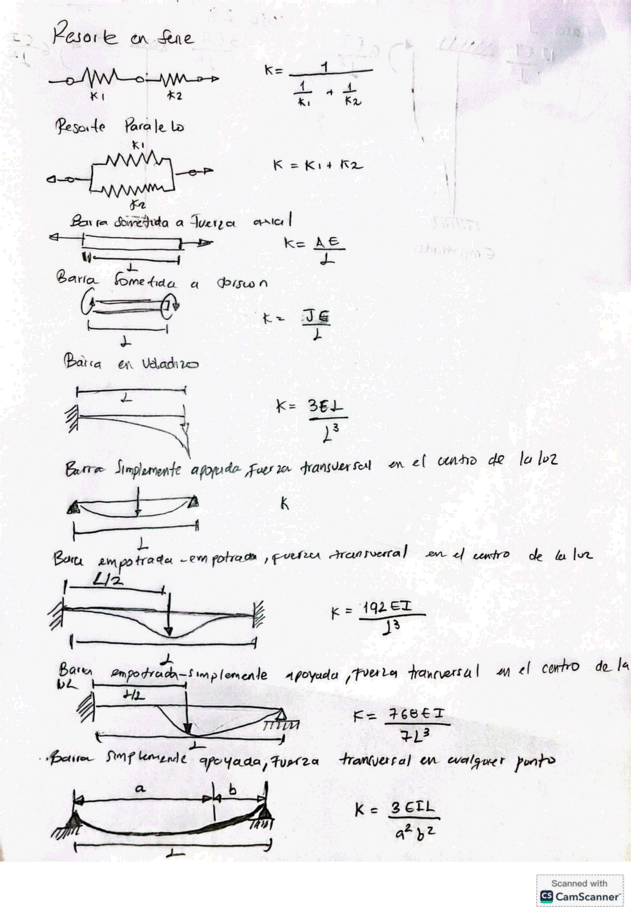 Resorte en serie
K1 K2
K= 1 / (1/K1 + 1/K2)
Resorte Paralelo
K1
K2
K = K1 + K2
Barra sometida a fuerza axial
K= AE / L
L
Barra Sometida a torsion
K= JE / L
L
Barra en voladizo
L
K= 3EL / L³
Barra simplemente apoyada, fuerza transversal en el centro de la luz
K
L
Barra empotrada-empotrada, fuerza transversal en el centro de la luz
L/2
K= 192EI / L³
L
Barra empotrada-simplemente apoyada, fuerza tranversal en el centro de la
L/2
K= 768EI / 7L³
L
Barra simplemente apoyada, fuerza tranversal en cualquer punto
a b
K= 3EIL / a²b²
L
Scanned with
CS CamScanner